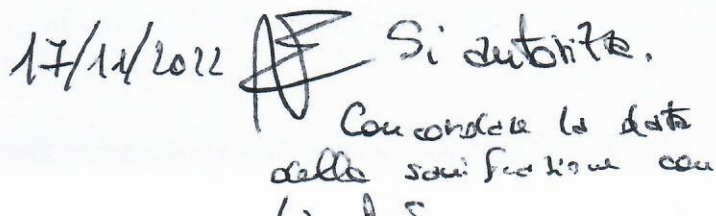 17/11/2022 Si autorizza.
Concordare la data
della sanificazione con